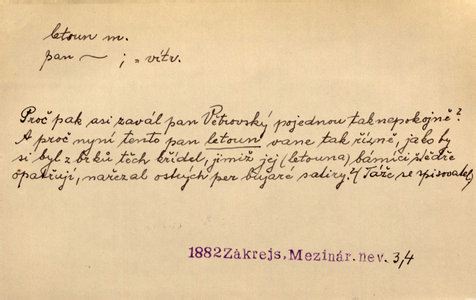 letoun m.
pan ~ ; = vítr.
Proč pak asi zavál pan Větrovský pojednou tak napokojně?
A proč nyní tento pan letoun vane tak řízně, jako by
si byl z brků těch křídel, jimiž jej (letouna) básníci štědře
opatřují, nařezal ostrých per bujaré satiry? (Táže se spisovatel)
1882 Zákrejs, Mezinár. nev. 3,4